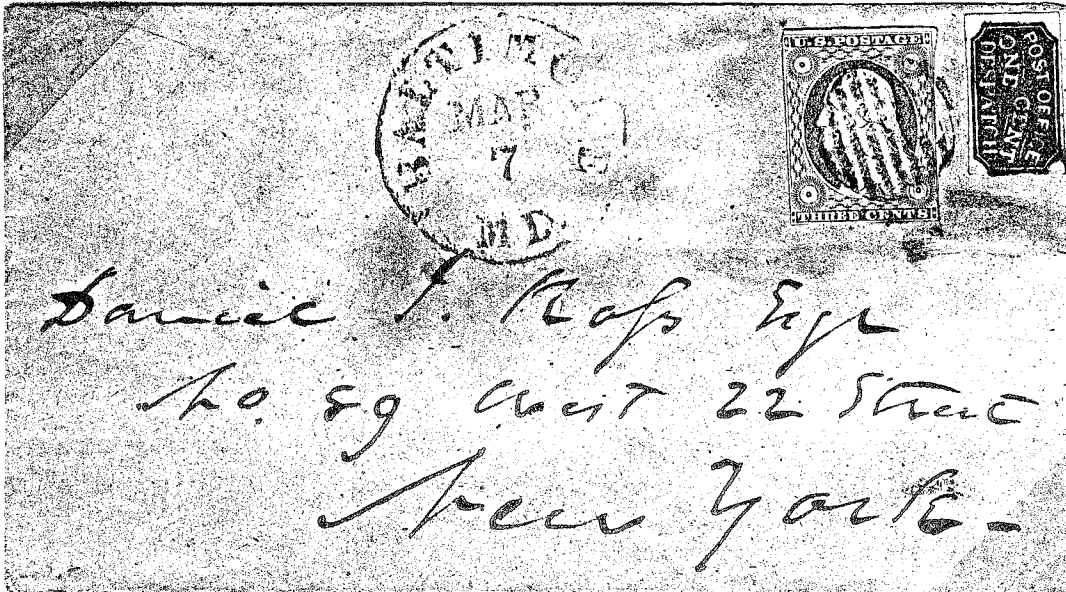 BALTIMO
MAR
7
MD.
U.S. POSTAGE
THREE CENTS
POST OFFICE
ONE CENT
DESPATCH
Daniel Esqr
No. 89 West 22 Street
New York